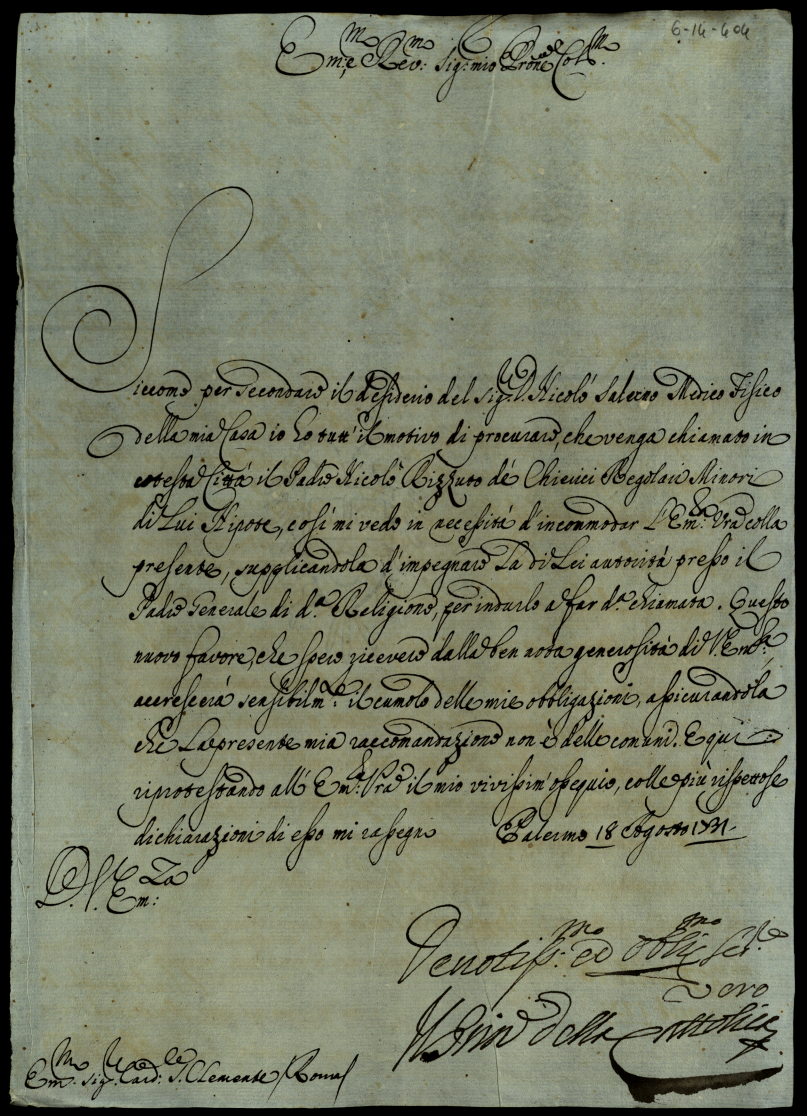 6-14-404
Em:mo e Rev:mo Sig: mio Prone Colmo
Siccome per secondare il desiderio del Sig:r D. Nicolò Salerno Medico Fisico
della mia Casa io hò tutt' il motivo di procurare, che venga chiamato in
cotesta Città il Padre Nicolò Rizzuto de' Chierici Regolari Minori
di Lui Nipote, così mi vedo in necessità d'incommodar l'Em:za Vra colla
presente, supplicandola d'impegnare La di Lei autorità presso il
Padre Generale di d.a Religione, per indurlo a far d.a chiamata. Questo
nuovo favore, che spero ricevere dalla ben nota generosità di V. Em:za
accrescerà sensibilm:te il cumolo delle mie obbligazioni, assicurandola
che La presente mia raccomandazione non è delle comuni. E qui
riprotestando all' Em:za Vra il mio vivissim' ossequio, colle più rispettose
dichiarazioni di esso mi rassegno Palermo 18 Agosto
D. V. Em:za
Devotiss:mo ed obblig:mo Ser.e
vero
Il Prin.e della Cattolica
Em:mo Sig:r Card:le S. Clemente / Roma